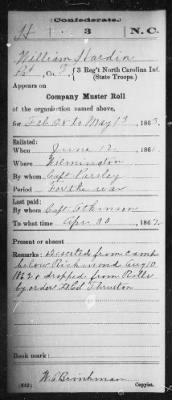 Confederate.
H 3 N.C.
William Hardin
Pvt, Co. H, 3 Reg't North Carolina Inf.
(State Troops.)
Appears on
Company Muster Roll
of the organization named above,
for Feb 28 to May 1, 1863.
Enlisted:
When June 12, 186
Where Wilmington
By whom Capt Parsley
Period For the war
Last paid:
By whom Capt Atkinson
To what time Apr 30, 1862.
Present or absent
Remarks: Deserted from camp
below Richmond Aug 10
1862 & dropped from Rolls
by order Lt Col Thruston
Book mark:
W. S. Brinkman
(642) Copyist.